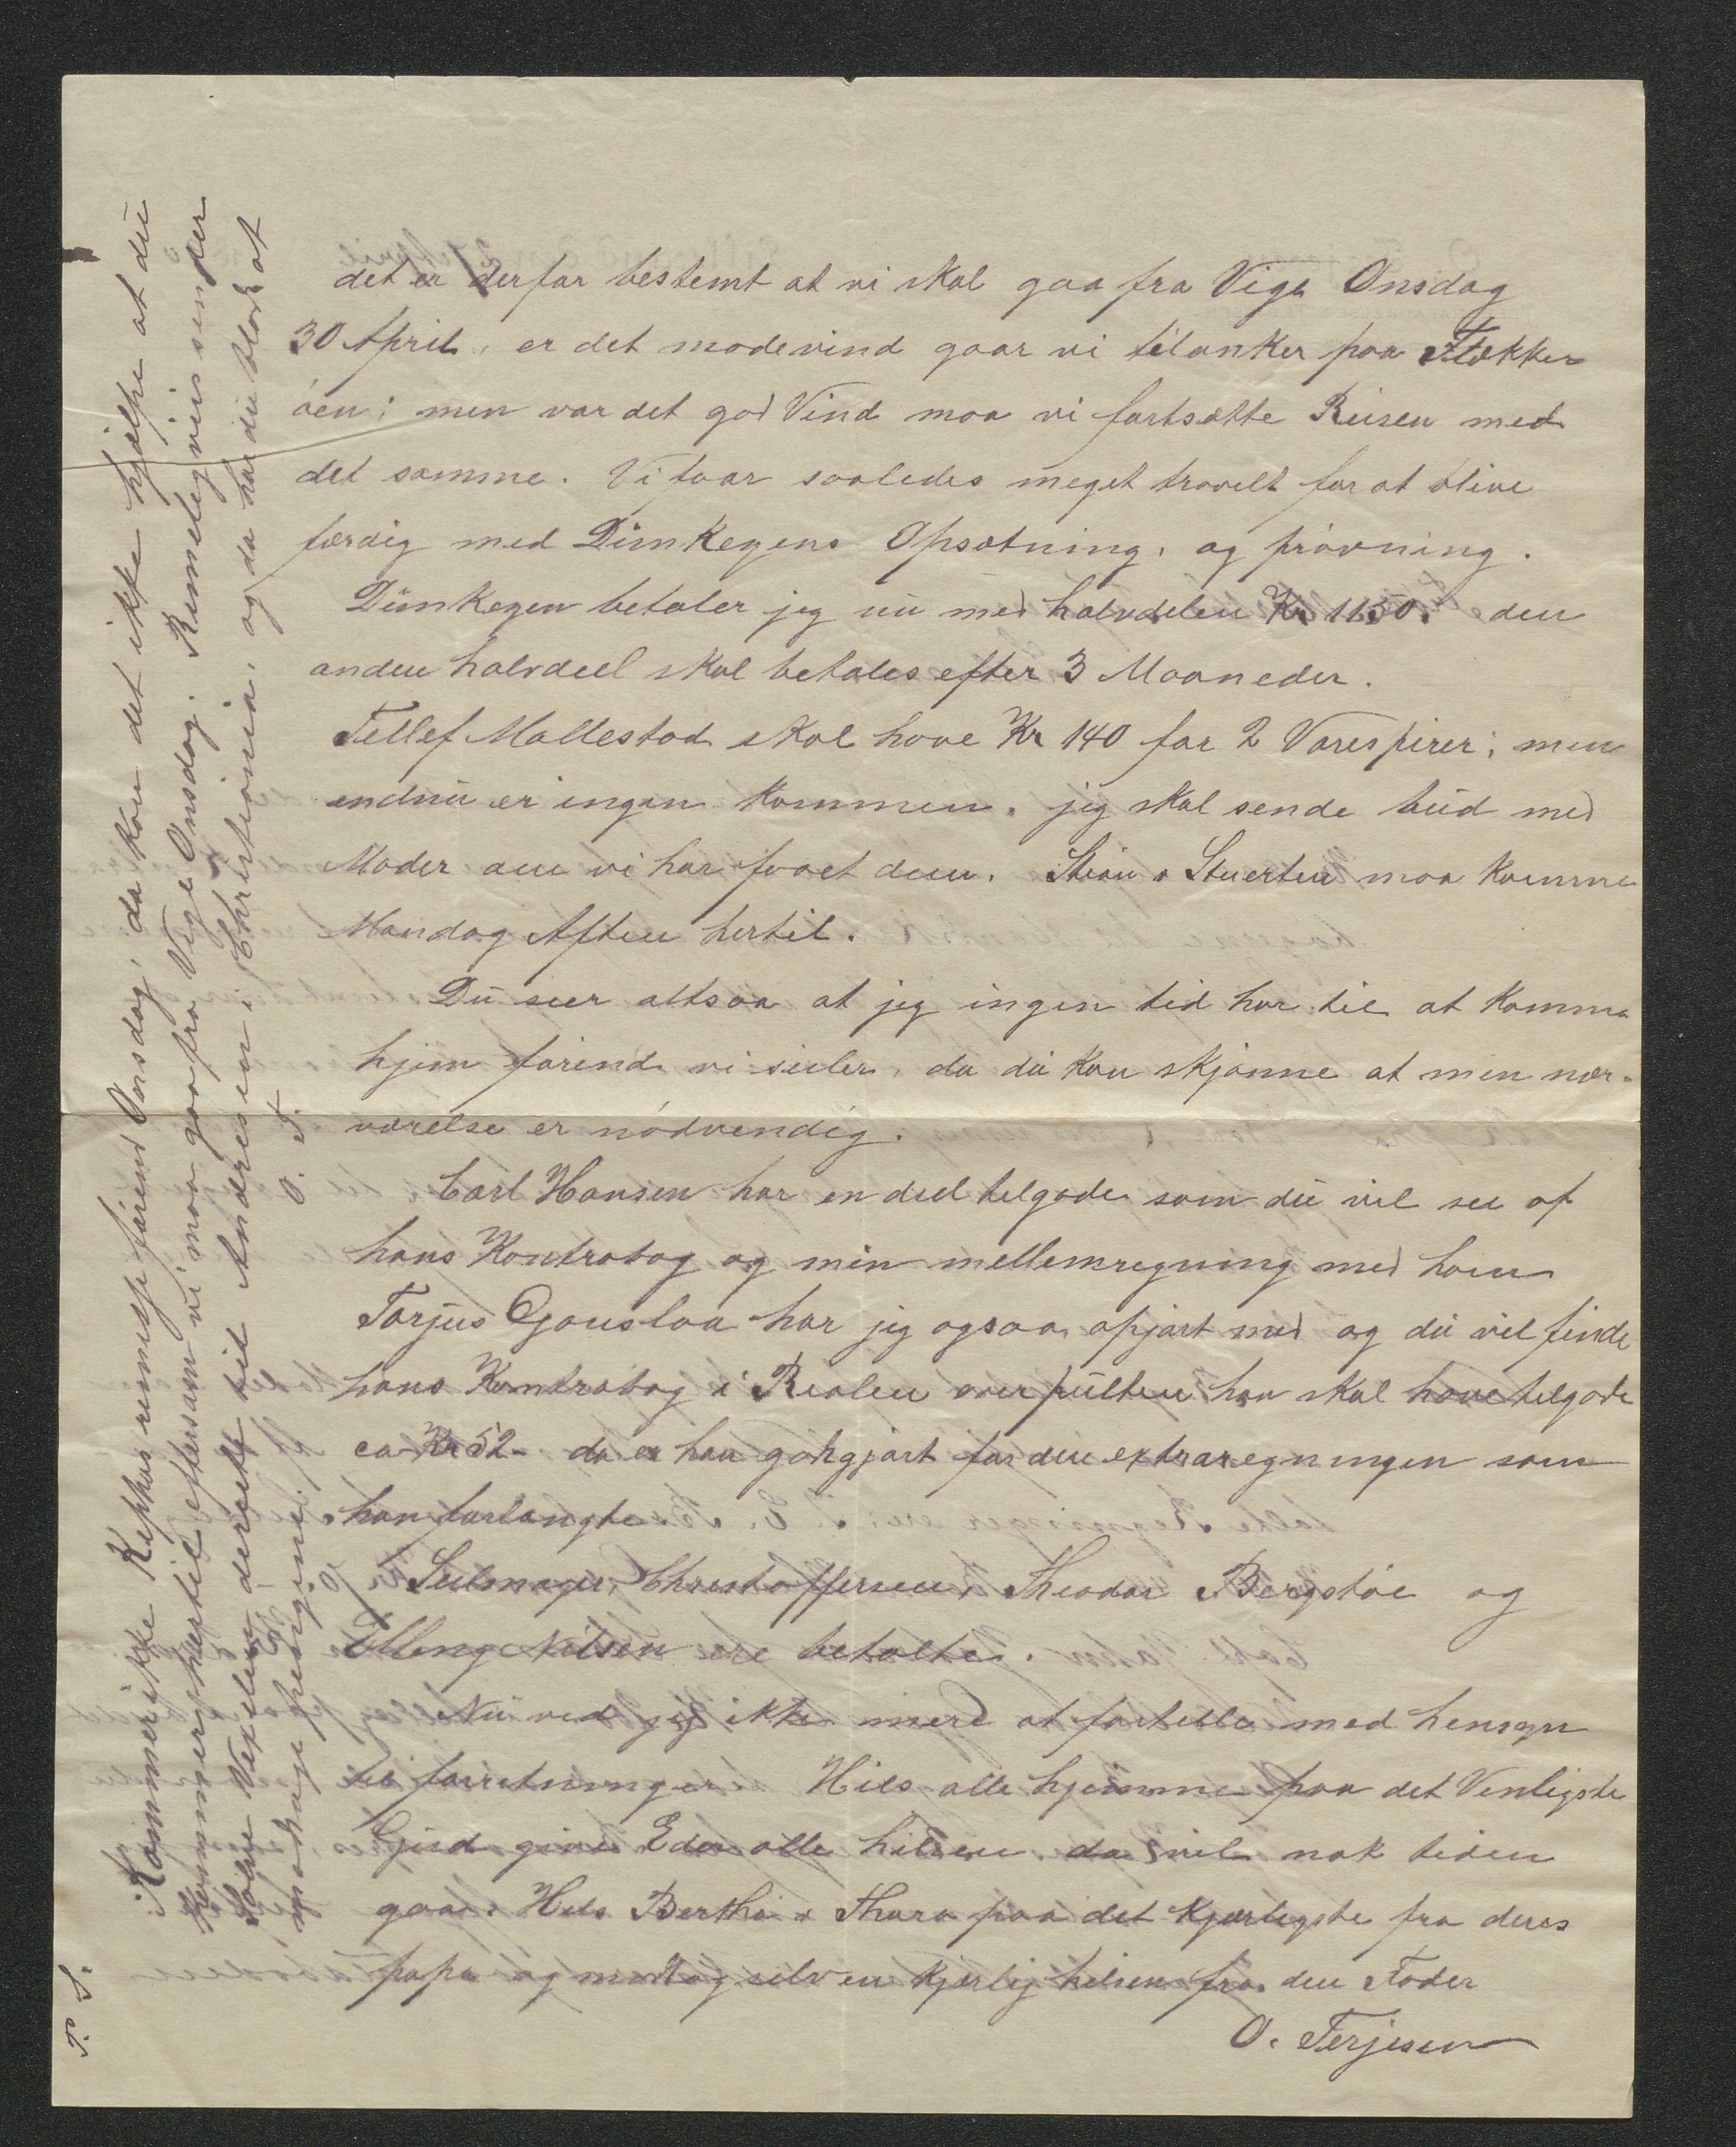 det er derfor bestemt at vi skal gaa fra Vige Onsdag
30 April, er det modevind gaar vi tilankers paa Flekker
öen; men var det god Vind maa vi fortsætte Reisen med
det samme. Vi faar saaledes meget travelt for at blive
færdig med Dunkegens Opsætning, og prövning.
Dunkegen betaler jeg nu med halvdelen Kr 1150. den
anden halvdeel skal betales efter 3 Maaneder.
Tellef Mollestad skal have Kr 140 for 2 Varespirer; men
endnu er ingen kommen. jeg skal sende bud med
Moder om vi har faaet dem. Stian & Stuerten maa komme
Mandag Aften hertil.
Du seer altsaa at jeg ingen tid har til at komme
hjem förend vi seiler, da du kan skjönne at min nær-
værelse er nödvendig.
Carl Hansen har en deel tilgode som du vil see af
hans Kontrabog og min mellemregning med ham
Torjus Ogouslaa har jeg ogsaa opgjort med og du vil finde
hans Kontrabog i Reolen over pulten han skal have tilgode
ca Kr 52- da er han godtgjort for den extraregningen som
han forlangte.
Seilmager Christoffersen, Theodor Bergstöe og
Elling Nilsen ere betalte.
Nu ved jeg ikke mere at fortelle med hensyn
til forretninger. Hils alle hjemme paa det Venligste
Gud give Eder alle helsen da vil nok tiden
gaa. Hils Berthe & Thora paa det kjærligste fra deres
papa og modtag selv en kjerlig hilsen fra din Fader
O. Terjesen
P. S.
Kommer ikke Kephas remisse förend Onsdag, da kan det ikke hjælpe at du
remmiserer hertil eftersom vi maa gaa fra Vige Onsdag. Rimeligviis sender
Salve Vexelen derecte til Andresen i Christiania, og da har du blot at
modtage pengene.
O. T.